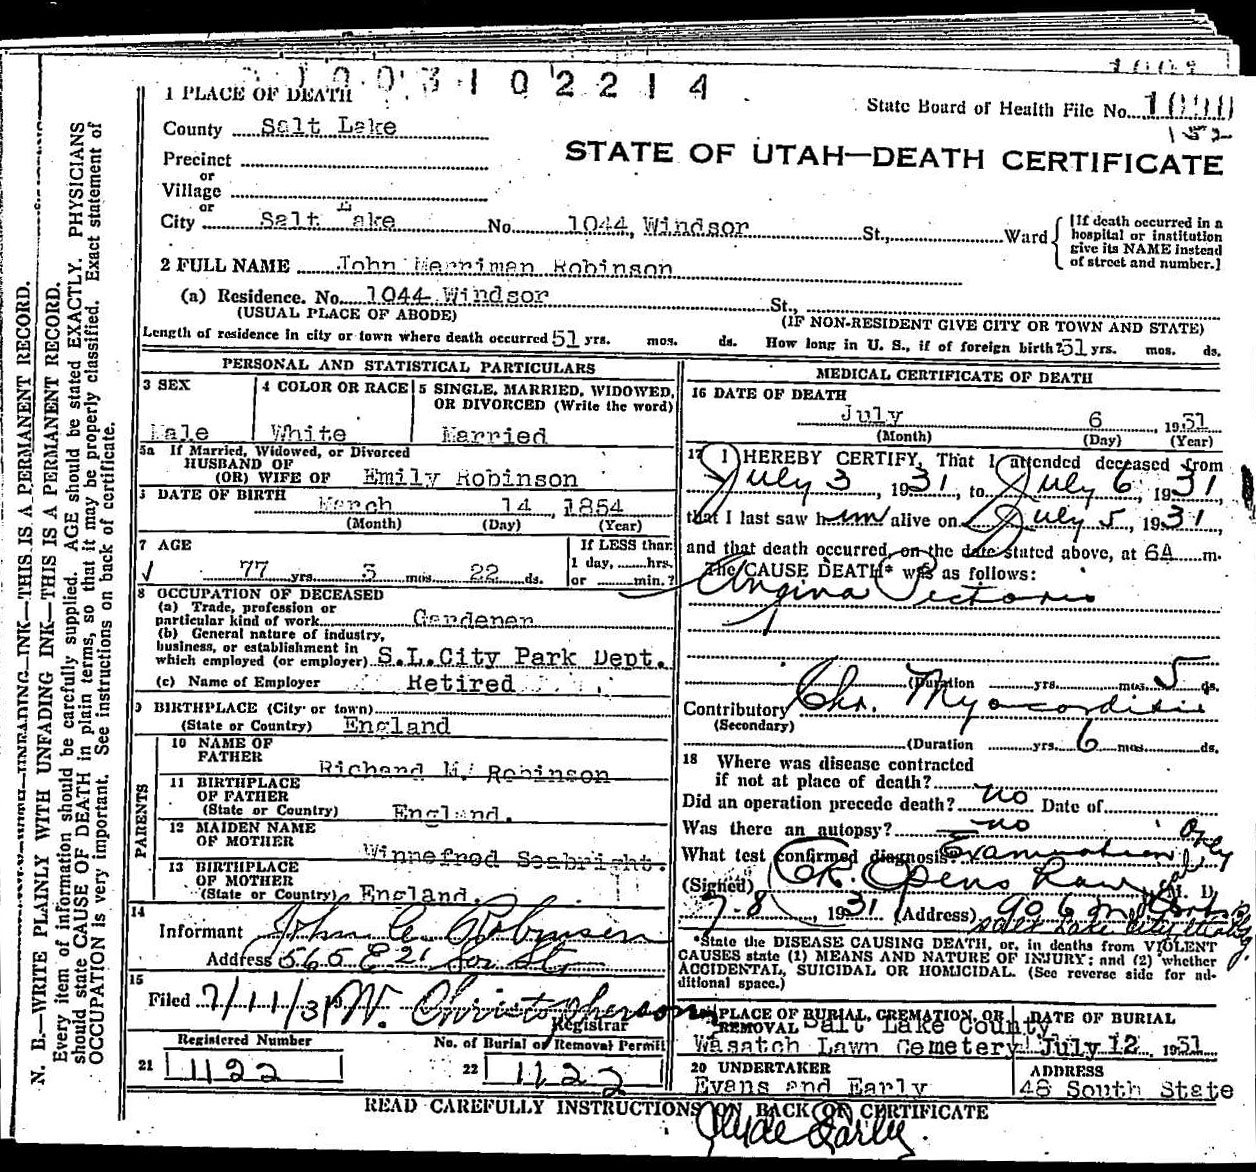 3102214
1 PLACE OF DEATH
State Board of Health File No.
County Salt Lake
STATE OF UTAH—DEATH CERTIFICATE
Precinct
or
Village
or
City Salt Lake No. 1044 Windsor St., Ward
[If death occurred in a
hospital or institution
give its NAME instead
of street and number.]
2 FULL NAME John Merriman Robinson
(a) Residence. No. 1044 Windsor St.,
(USUAL PLACE OF ABODE) (IF NON-RESIDENT GIVE CITY OR TOWN AND STATE)
Length of residence in city or town where death occurred 51 yrs. mos. ds. How long in U. S., if of foreign birth? 51 yrs. mos. ds.
PERSONAL AND STATISTICAL PARTICULARS
3 SEX
Male
4 COLOR OR RACE
White
5 SINGLE, MARRIED, WIDOWED,
OR DIVORCED (Write the word)
Married
5a If Married, Widowed, or Divorced
HUSBAND OF
(OR) WIFE OF Emily Robinson
DATE OF BIRTH
March 14, 1854
(Month) (Day) (Year)
7 AGE
77 yrs. 3 mos. 22 ds.
If LESS than
1 day, hrs.
or min.?
8 OCCUPATION OF DECEASED
(a) Trade, profession or
particular kind of work Gardener
(b) General nature of industry,
business, or establishment in
which employed (or employer) S.L.City Park Dept.
(c) Name of Employer Retired
9 BIRTHPLACE (City or town)
(State or Country) England
PARENTS
10 NAME OF
FATHER Richard M. Robinson
11 BIRTHPLACE
OF FATHER
(State or Country) England.
12 MAIDEN NAME
OF MOTHER Winnefred Seabright.
13 BIRTHPLACE
OF MOTHER
(State or Country) England.
14
Informant John C. Robinson
Address 565 E 21 So. St.
15
Filed 7/11/31 W. Christopherson
Registrar
Registered Number
21 1122
No. of Burial or Removal Permit
22 1122
MEDICAL CERTIFICATE OF DEATH
16 DATE OF DEATH
July 6, 1931
(Month) (Day) (Year)
17 I HEREBY CERTIFY, That I attended deceased from
July 3, 1931, to July 6, 1931
that I last saw him alive on July 5, 1931
and that death occurred, on the date stated above, at 6A m.
The CAUSE DEATH* was as follows:
Angina Pectoris
(Duration yrs. mos. 5 ds.
Contributory Chr. Myocarditis
(Secondary)
(Duration yrs. 6 mos. ds.
18 Where was disease contracted
if not at place of death?
Did an operation precede death? no Date of
Was there an autopsy? no
What test confirmed diagnosis Examination only
(Signed) M. D.
7-8, 1931 (Address) 906
Salt Lake City
*State the DISEASE CAUSING DEATH, or, in deaths from VIOLENT
CAUSES state (1) MEANS AND NATURE OF INJURY; and (2) whether
ACCIDENTAL, SUICIDAL OR HOMICIDAL. (See reverse side for ad-
ditional space.)
PLACE OF BURIAL, CREMATION, OR
REMOVAL Salt Lake County
Wasatch Lawn Cemetery
DATE OF BURIAL
July 12 1931
20 UNDERTAKER
Evans and Early
ADDRESS
48 South State
READ CAREFULLY INSTRUCTIONS ON BACK OF CERTIFICATE
Clyde Early
N. B.—WRITE PLAINLY WITH UNFADING INK—THIS IS A PERMANENT RECORD.
Every item of information should be carefully supplied. AGE should be stated EXACTLY. PHYSICIANS
should state CAUSE OF DEATH in plain terms, so that it may be properly classified. Exact statement of
OCCUPATION is very important. See instructions on back of certificate.